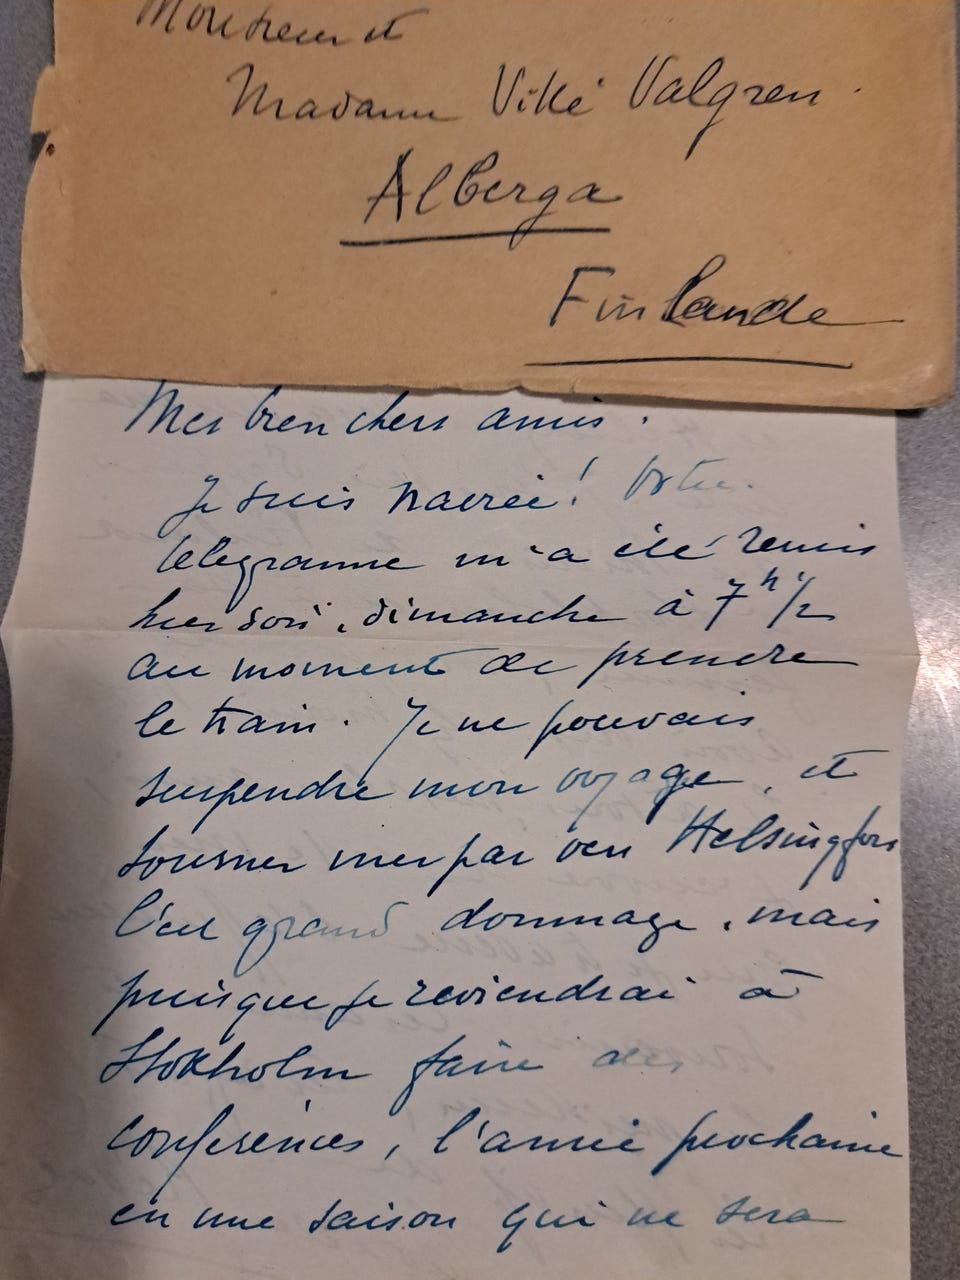 Monsieur et
Madame Villé Valgren.
Alberga
Finlande
Mes bien chers amis.
Je suis navrée! Votre
télégramme m'a été remis
hier soir, dimanche à 7h 1/2
au moment de prendre
le train. Je ne pouvais
suspendre mon voyage, et
tourner par Helsingfors
C'est grand dommage, mais
puisque je reviendrai à
Stokholm faire des
conférences, l'année prochaine
en une saison qui ne sera